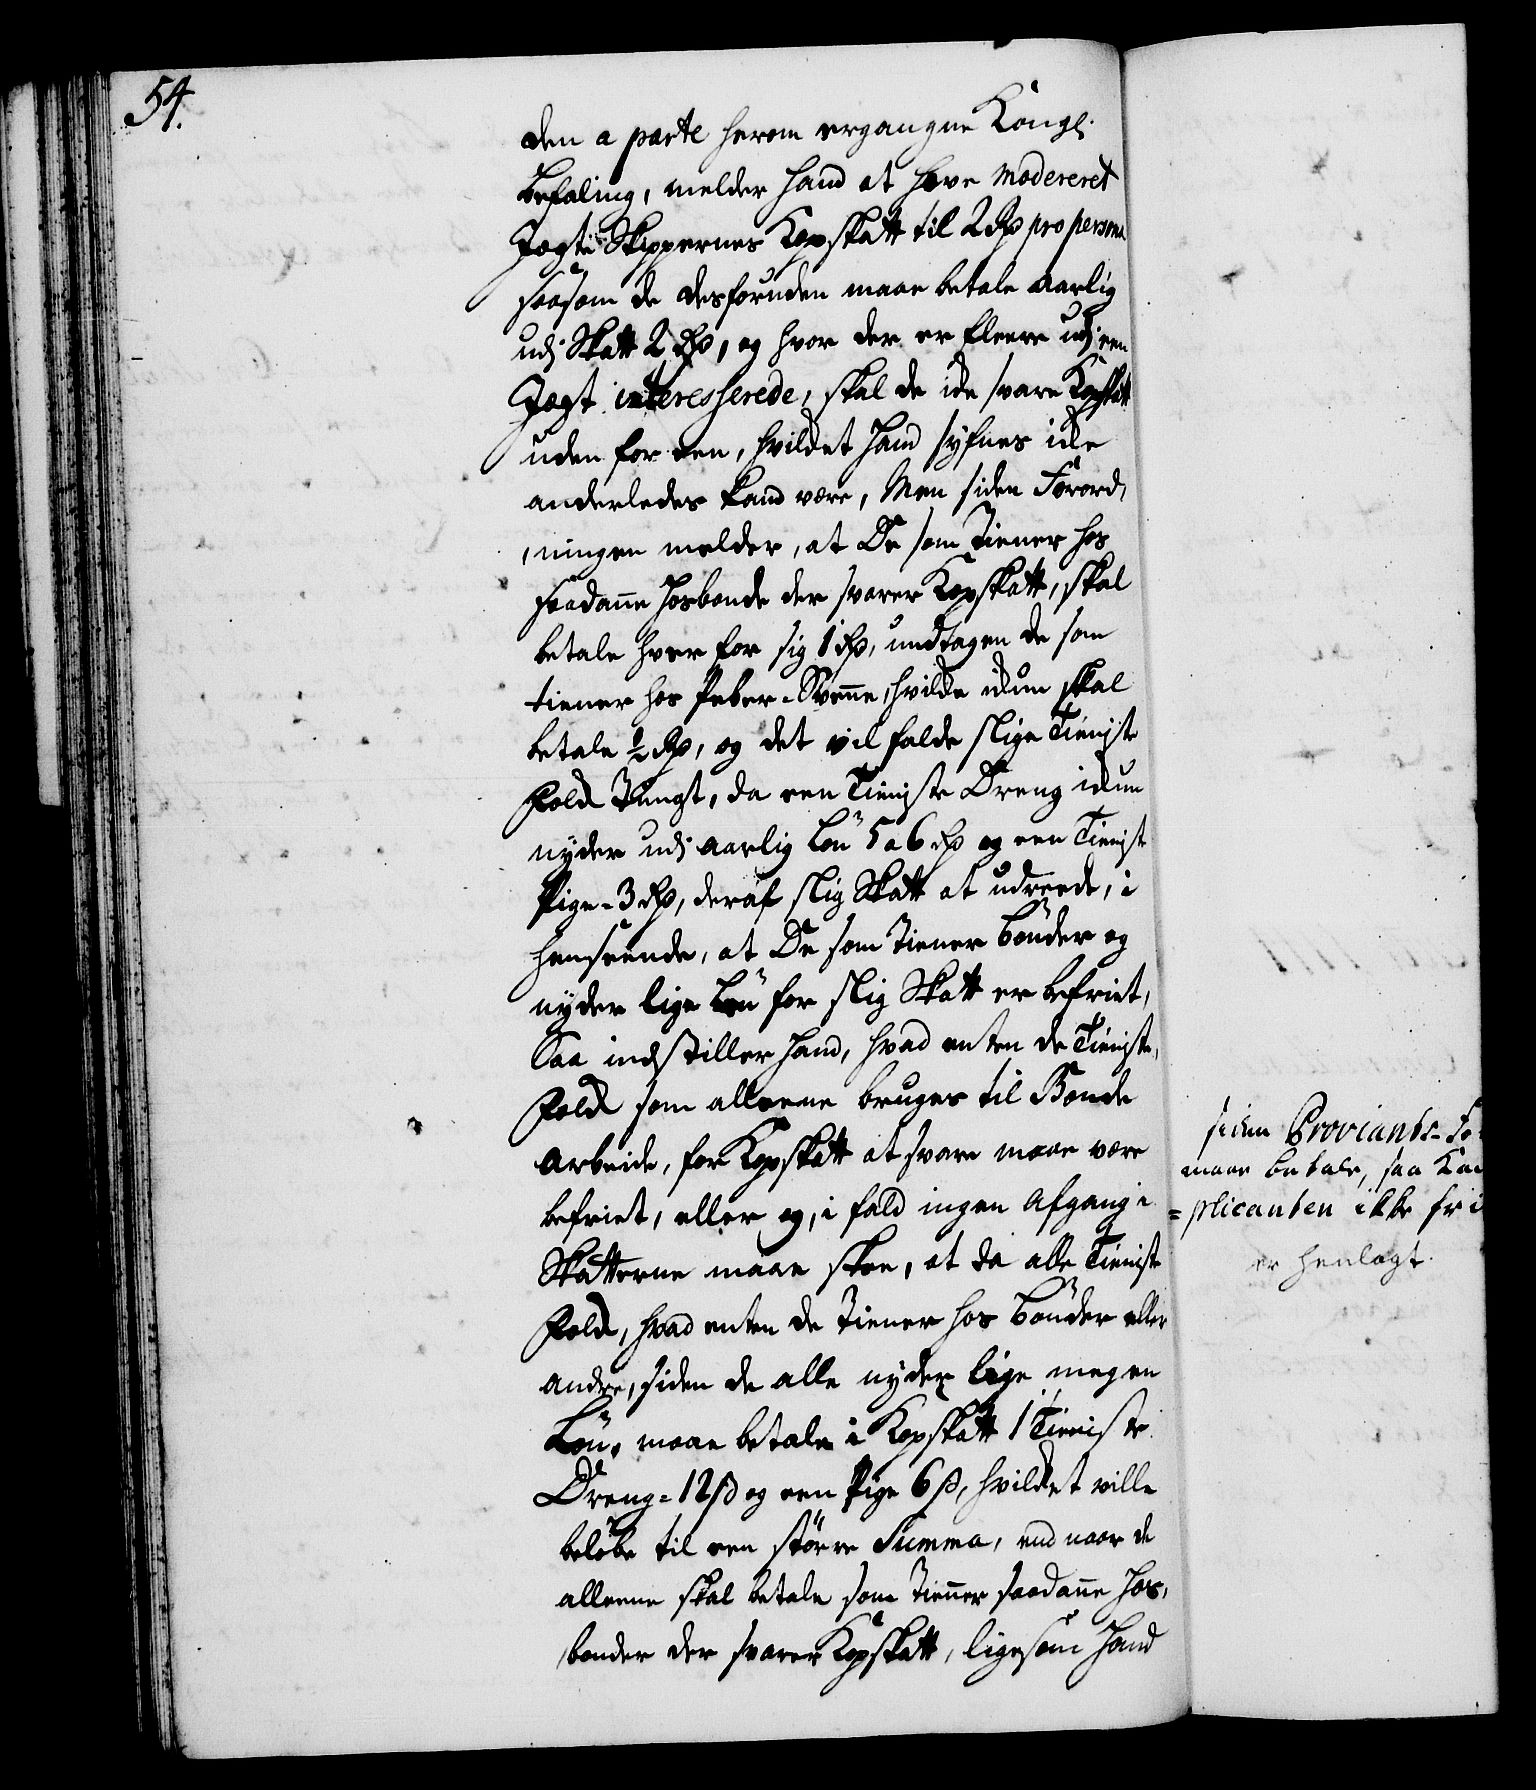 54.
den a parte herom ergangne Kongl.
befaling, melder hand at have modereret
Jagte Skippernes Kopskatt til 2 Rd pro persona
saasom de desforuden maae betale aarlig
udi Skatt 2 Rd, og hvor der er fleere udj een
Jagt interesserede, skal de icke svare Kopskatt
uden for een, hvilcket hand synes icke
anderledes kand være, Men siden Forord,
,ningen melder, at De som Tiener hos
saadanne Hosbonde der svarer Kopskatt, skal
betale hver for sig 1 Rd, undtagen de som
tiener hos Peber-Svenne, hvilcke ickun skal
betale ½ Rd, og det vil falde slige Tieniste
Folck Tungt, da een Tieniste Dreng ickun
nyder udj aarlig Løn 5 a 6 Rd og een Tienist
Pige - 3 Rd, deraf slig Skatt at udreede, i
henseende, at De som Tiener Bønder og
nyder lige Løn for slig Skatt er befriet,
Saa indstiller hand, hvad enten de Tieniste,
Folck som alleene bruges til Bonde
Arbeide, for Kopskatt at svare maae være
befriet, eller og, i fald ingen Afgang i
Skatterne maae skee, at da alle Tienist
Folck, hvad enten de Tiener hos Bønder eller
andre, siden de alle nyder lige megen
Løn, maae betale i Kopskatt 1 Tieniste
Dreng = 12 ß og een Pige 6 ß, hvilcket ville
beløbe til een større Summa, end naar de
alleene skal betale som Tiener saadanne Hos,
,bonder der svarer Kopskatt, ligesom Hand
siden Proviants-
maae betale, saa
=plicanten ikke
er henlagt.